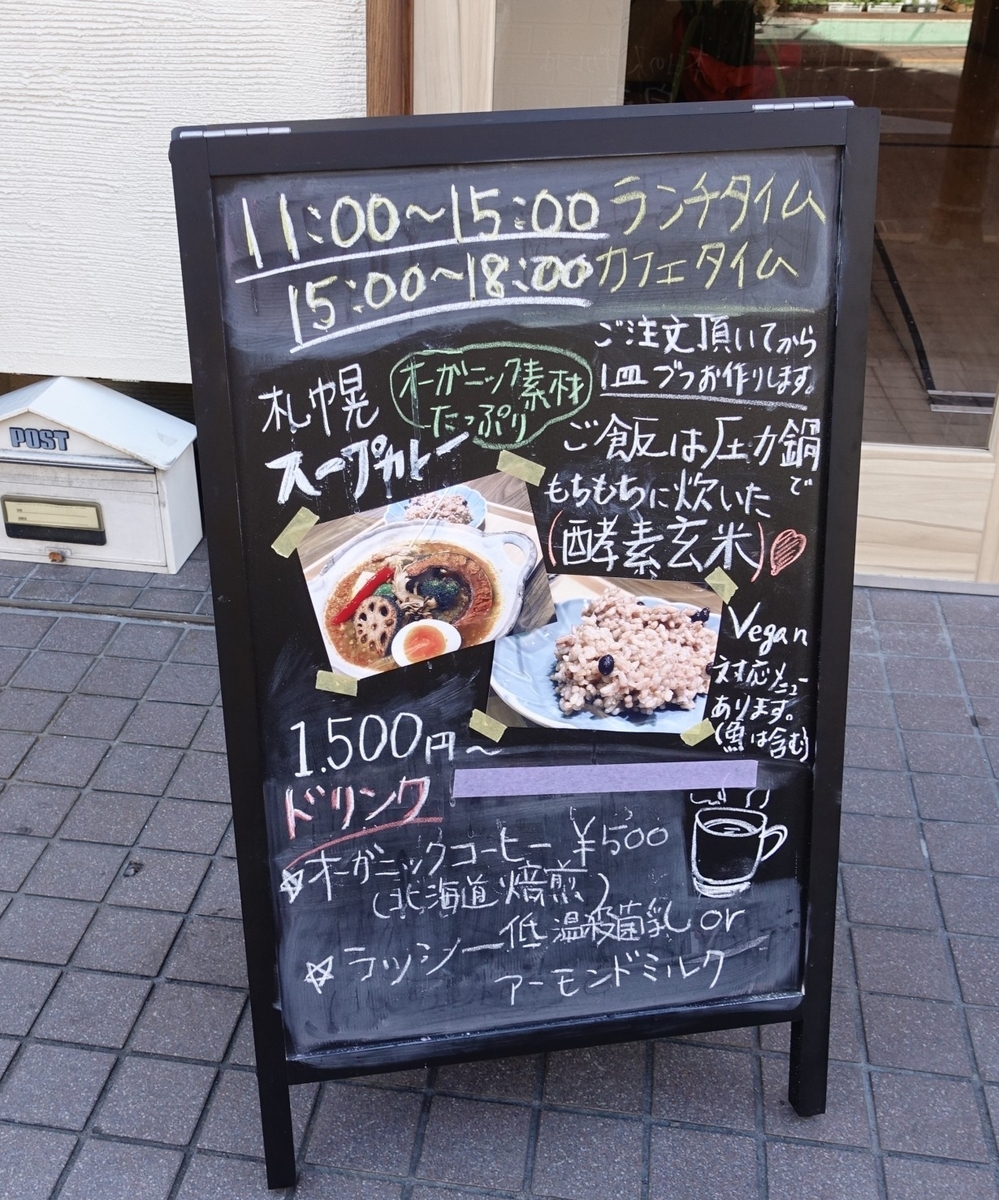 11:00～15:00 ランチタイム
15:00～18:00 カフェタイム
ご注文頂いてから
1皿づつお作りします。
札幌
スープカレー
オーガニック素材
たっぷり
ご飯は圧力鍋で
もちもちに炊いた
(酵素玄米)
Vegan
対応メニュー
あります。
(魚は含む)
1.500円～
ドリンク
☆オーガニックコーヒー ¥500
(北海道焙煎)
☆ラッシー 低温殺菌乳 or
アーモンドミルク
POST